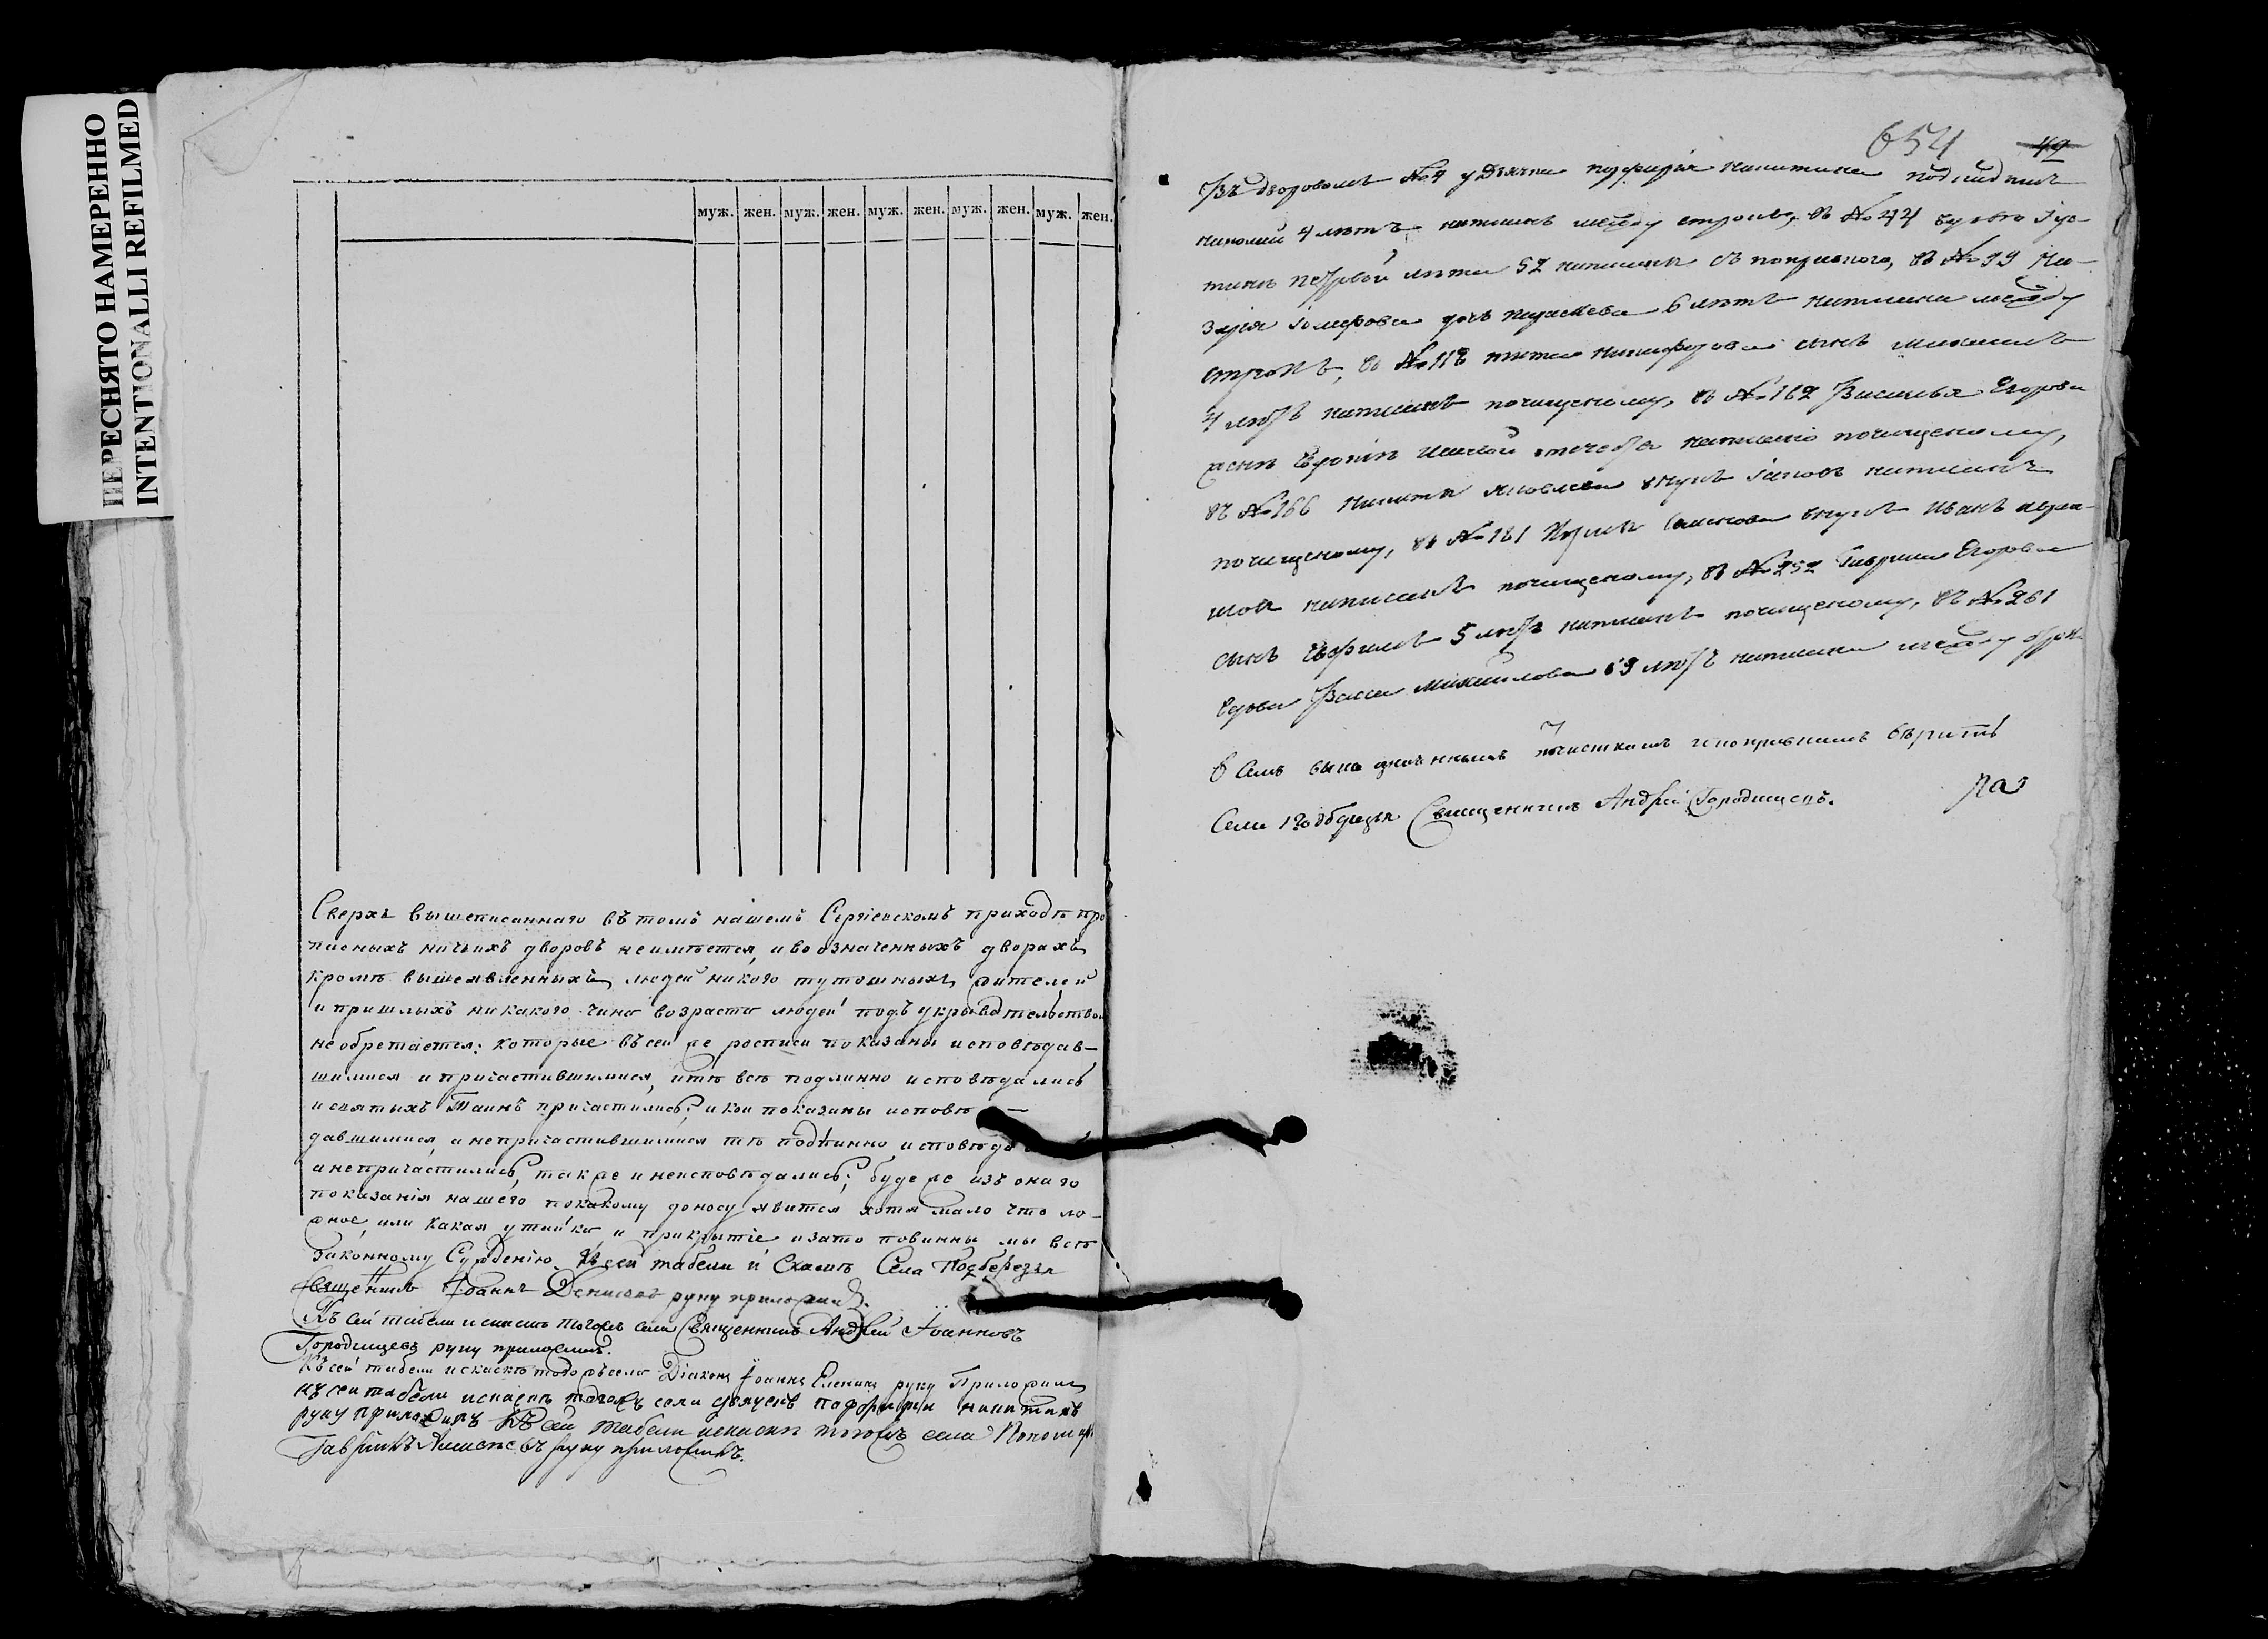 ПЕРЕСНЯТО НАМЕРЕННО
INTENTIONALLI REFILMED
муж. жен. муж. жен. муж. жен. муж. жен. муж. жен.
Сверхъ вышеписаннаго въ томъ нашемъ Сергіевскомъ приходѣ про
писныхъ ничьихъ дворовъ неимѣется, и во означенныхъ дворахъ
кромѣ вышеявленныхъ людей никого тутошныхъ жителей
и пришлыхъ никакого чина возраста людей подъ укрывательствомъ
необретается: которые въ сей же росписи показаны исповѣдав-
шимися и причастившимися, и тѣ всѣ подлинно исповѣдались
и святыхъ Таинъ причастились; и кои показаны исповѣ-
давшимися, а непричастившимися тѣ подлинно исповѣда
а непричастились, также и неисповѣдались; буде же изъ онаго
показанія нашего покакому доносу явится хотя мало что ло-
жное, или какая утайка, и прикрытіе и зато повинны мы всѣ
законному Сужденію. Къ сей табели и Скаскѣ Села Подберезья
Священникъ Іоаннъ Денисовъ руку приложилъ.
Къ сей табели и скаскѣ тогожъ села Священникъ Андрей Іоанновъ
Городищевъ руку приложилъ.
Къ сей табели и скаскѣ тогожъ села Діаконъ Іоаннъ Еленинъ руку Приложилъ
къ сей табели искаскѣ тогожъ села дьячекъ порфирій никитинъ
руку приложилъ Къ сей табели искаскѣ тогожъ села Пономарь
Гавріилъ Алексѣевъ руку приложилъ.
654 49
Въ дворовомъ № 4 у Дьячка порфирія никитина
николай 4 лѣтъ написанъ между строкъ, въ № 44
петровой лѣта 52 написаны съ поправкого, въ № 99 На-
зарія дочь параскева 6 лѣтъ написана между
строкъ, въ № 118 никифорова сынъ михаилъ
4 лѣтъ написанъ почищеному, въ № 162 Василья Егорова
жены написано почищеному,
въ № 166 никиты яковлева внукъ іаковъ написанъ
почищеному, въ № 181 внукъ Иванъ
написанъ почищеному, въ № 252 Гаврила Егорова
сынъ 5 лѣтъ написанъ почищеному, въ № 261
вдова Васса михайлова 69 лѣтъ написана между строкъ
В семъ почисткамъ и поправкамъ
Села Подберезья Священникъ Андрей Городищевъ.